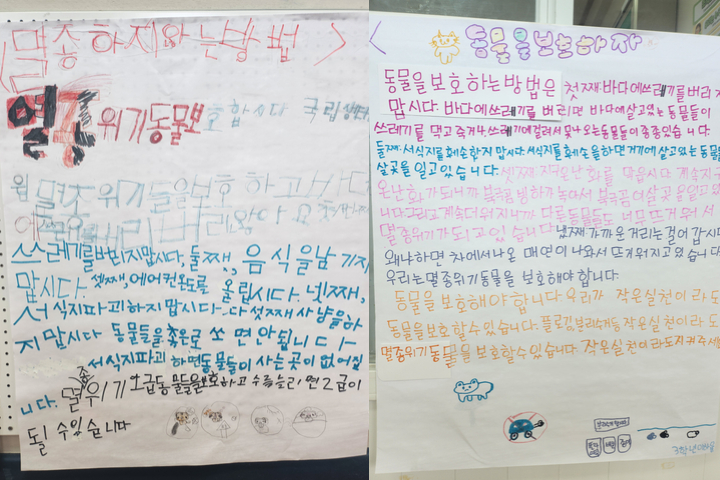 멸종하지않는방법
멸종 위기동물보호합시다 국립생태
쓰레기를버리지맙시다, 둘째, 음식을남기지
맙시다. 셋째, 에어컨온도를 올립시다. 넷째,
서식지파괴하지맙시다. 다섯째 사냥을하
지맙시다 동물들을총으로 쏘면안됩니다
서식지파괴하면동물들이 사는곳이없어집
니다. 멸종위기 1급동물들을보호하고 수를늘리면2급이
될 수있습니다
동물을보호하자
동물을보호하는방법은 첫째:바다에쓰레기를버리지
맙시다. 바다에쓰레기를 버리면 바다에살고있는 동물들이
쓰레기를 먹고 죽거나 쓰레기에걸려서 못나오는동물들이 종종있습니다
둘째:서식지를훼손하지 맙시다. 서식지를 훼손을하면 거기에 살고있는 동물
살곳을 잃고있습니다. 셋째:지구온난화를 막읍시다 계속지구
온난화가되니까 북극곰 빙하가녹아서 북극곰이살곳을잃고있
니다그리고계속더워지니까 다른동물들도 너무뜨거워서
멸종위기가되고있습니다 넷째:가까운거리는걸어갑시다
왜냐하면 차에서나온 매연이 나와서 뜨거워지고있습니다
우리는멸종위기동물을 보호해야합니다.
동물을보호해야합니다 우리가 작은실천이라도
동물을보호할수있습니다. 플로깅,분리수거등작은실천이라도
멸종위기동물을보호할수있습니다. 작은실천이라도지켜주세
3학년